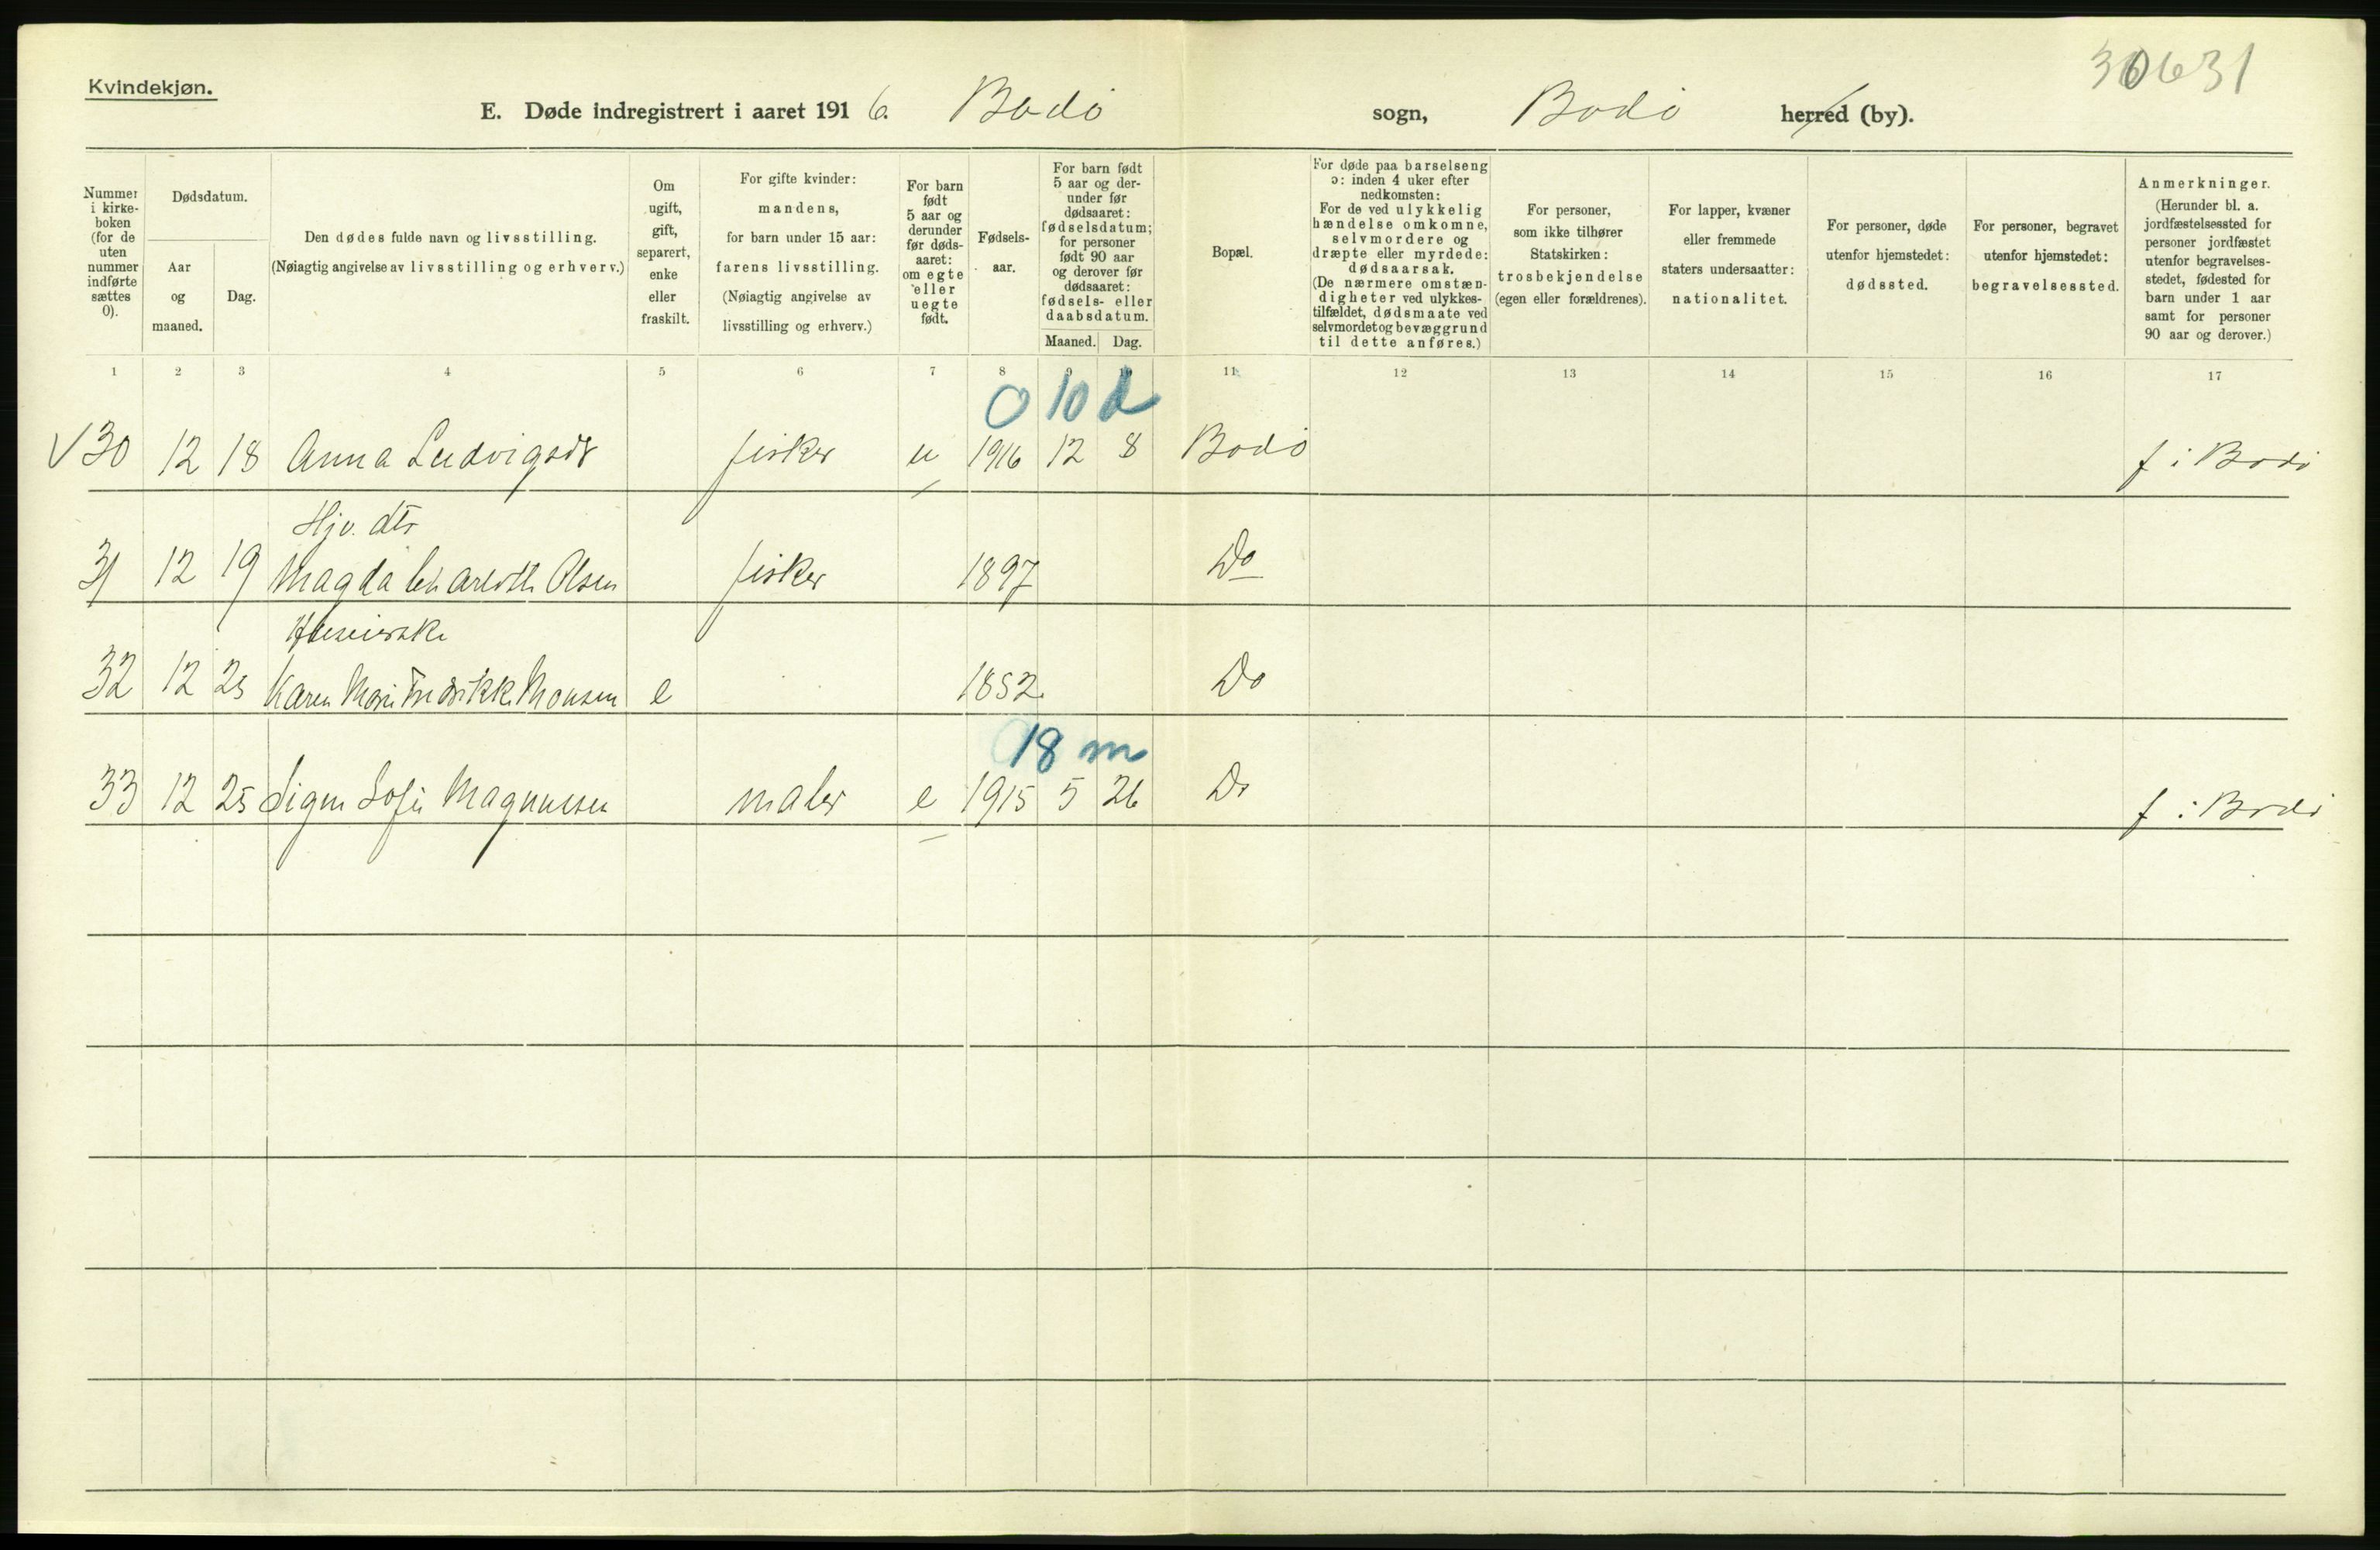 30631
Kvindekjøn.
E. Døde indregistrert i aaret 1916. Bodö sogn, Bodö herred (by).
Nummer i kirke-boken (for de uten nummer indførte sættes 0).
Dødsdatum.
Aar og maaned.
Dag.
Den dødes fulde navn og livsstilling.
(Nøiagtig angivelse av livsstilling og erhverv.)
Om ugift, gift, separert, enke eller fraskilt.
For gifte kvinder: mandens, for barn under 15 aar: farens livsstilling. (Nøiagtig angivelse av livsstilling og erhverv.)
For barn født 5 aar og derunder før døds-aaret: om egte eller uegte født.
Fødsels-aar.
For barn født 5 aar og der-under før dødsaaret: fødselsdatum; for personer født 90 aar og derover før dødsaaret: fødsels- eller daabsdatum.
Maaned. Dag.
Bopæl.
For døde paa barselseng ɔ: inden 4 uker efter nedkomsten: For de ved ulykkelig hændelse omkomne, selvmordere og dræpte eller myrdede: dødsaarsak. (De nærmere omstæn-digheter ved ulykkes-tilfældet, dødsmaate ved selvmordet og bevæggrund til dette anføres.)
For personer, som ikke tilhører Statskirken: trosbekjendelse (egen eller forældrenes).
For lapper, kvæner eller fremmede staters undersaatter: nationalitet.
For personer, døde utenfor hjemstedet: dødssted.
For personer, begravet utenfor hjemstedet: begravelsessted.
Anmerkninger. (Herunder bl. a. jordfæstelsessted for personer jordfæstet utenfor begravelses-stedet, fødested for barn under 1 aar samt for personer 90 aar og derover.)
1 2 3 4 5 6 7 8 9 10 11 12 13 14 15 16 17
0 10 d
√ 30 12 18 Anna Ludvigsdr fisker u 1916 12 8 Bodö f i Bodö
Hjv. dtr
31 12 19 Magda Olsen fisker 1897 Do
Huseierske
32 12 25 Karen Marie Fredrikke Monsen e 1852 Do
18 m
33 12 25 Signe Sofie Magnussen maler e 1915 5 26 Do f i Bodö